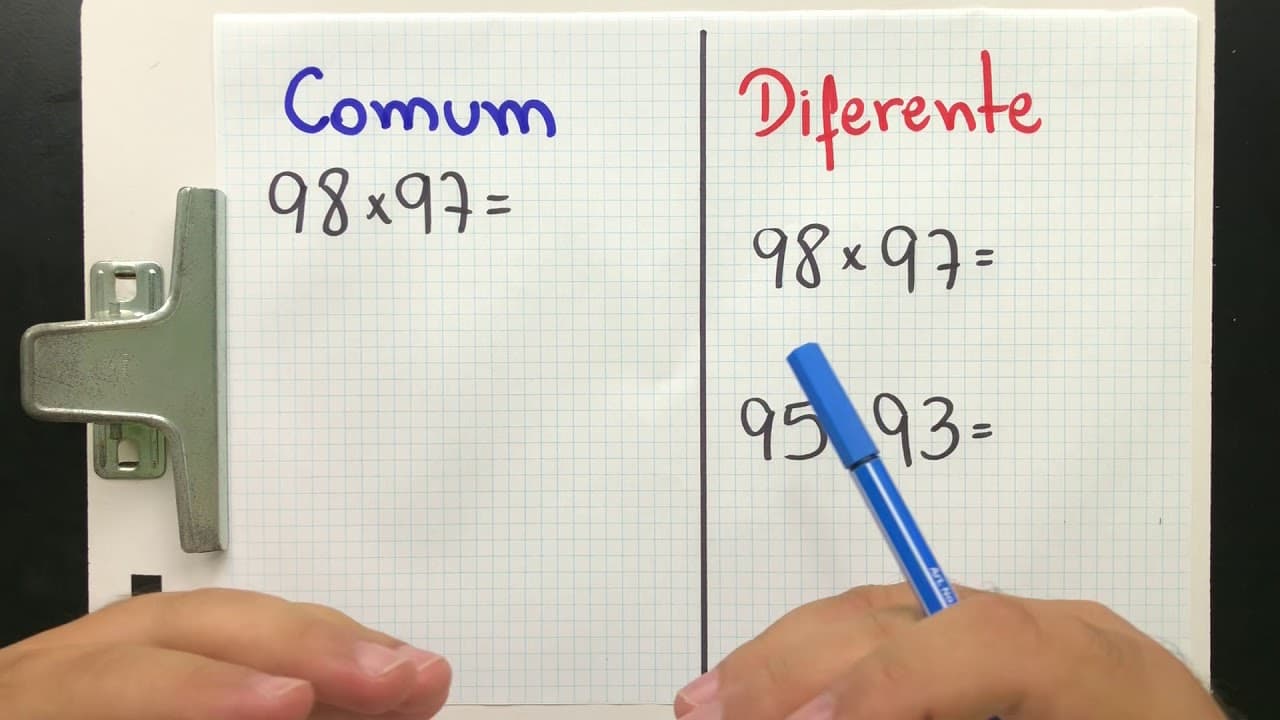 Comum
98×97=
Diferente
98×97=
95 93=
Art. No